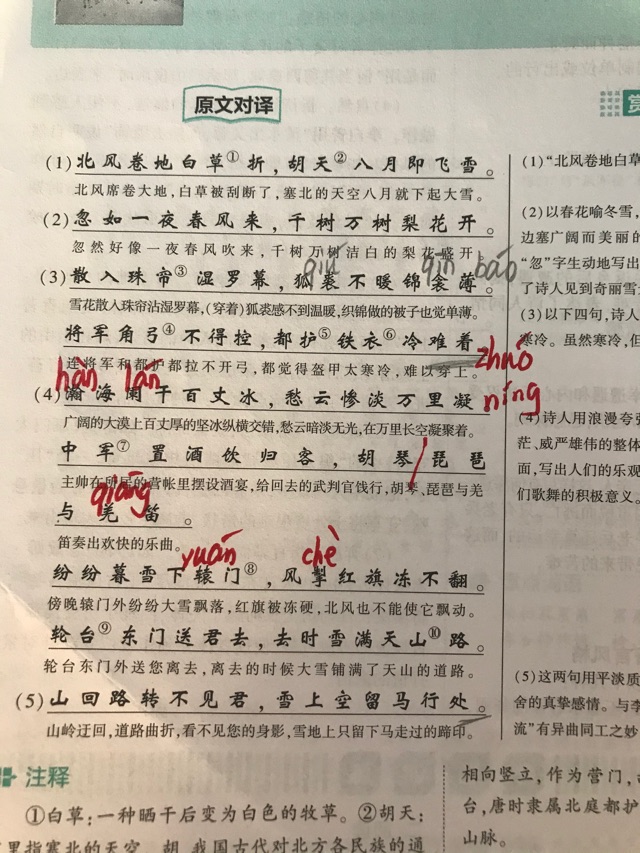 原文对译
赏
(1)北风卷地白草①折，胡天②八月即飞雪。
北风席卷大地，白草被刮断了，塞北的天空八月就下起大雪。
(2)忽如一夜春风来，千树万树梨花开。
忽然好像一夜春风吹来，千树万树洁白的梨花盛开。
qiú qīn báo
(3)散入珠帘③湿罗幕，狐裘不暖锦衾薄。
雪花散入珠帘沾湿罗幕，(穿着)狐裘感不到温暖，织锦做的被子也觉单薄。
将军角弓④不得控，都护⑤铁衣⑥冷难着
zhuó
连将军和都护都拉不开弓，都觉得盔甲太寒冷，难以穿上。
hàn lán
(4)瀚海阑干百丈冰，愁云惨淡万里凝
níng
广阔的大漠上百丈厚的坚冰纵横交错，愁云暗淡无光，在万里长空凝聚着。
中军⑦置酒饮归客，胡琴琵琶
主帅在所居的营帐里摆设酒宴，给回去的武判官饯行，胡琴、琵琶与羌
qiāng
与羌笛。
笛奏出欢快的乐曲。
yuán chè
纷纷暮雪下辕门⑧，风掣红旗冻不翻。
傍晚辕门外纷纷大雪飘落，红旗被冻硬，北风也不能使它飘动。
轮台⑨东门送君去，去时雪满天山⑩路。
轮台东门外送您离去，离去的时候大雪铺满了天山的道路。
(5)山回路转不见君，雪上空留马行处。
山岭迂回，道路曲折，看不见您的身影，雪地上只留下马走过的蹄印。
注释
①白草：一种晒干后变为白色的牧草。②胡天：
里指塞北的天空。胡，我国古代对北方各民族的通
(1)“北风卷地白草
(2)以春花喻冬雪，
边塞广阔而美丽的
“忽”字生动地写出
了诗人见到奇丽雪
(3)以下四句，诗人
寒冷。虽然寒冷，但
(4)诗人用浪漫夸
茫、威严雄伟的整体
面，写出人们的乐观
们歌舞的积极意义。
(5)这两句用平淡质
舍的真挚感情。与李
流”有异曲同工之妙
相向竖立，作为营门，
台，唐时隶属北庭都护
山脉。